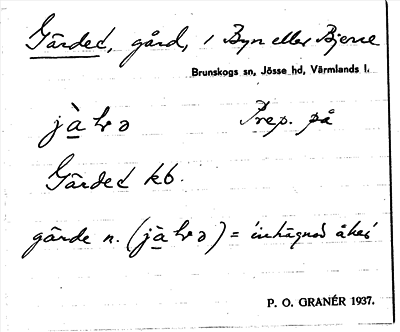 Gärdet, gård, i Byn eller Bjerne
Brunskogs sn, Jösse hd, Värmlands l.
jàɫrə Prep. på
Gärdet kb.
gärde n. (jàɫrə) = 'inhägnad åker'
P. O. GRANÉR 1937.